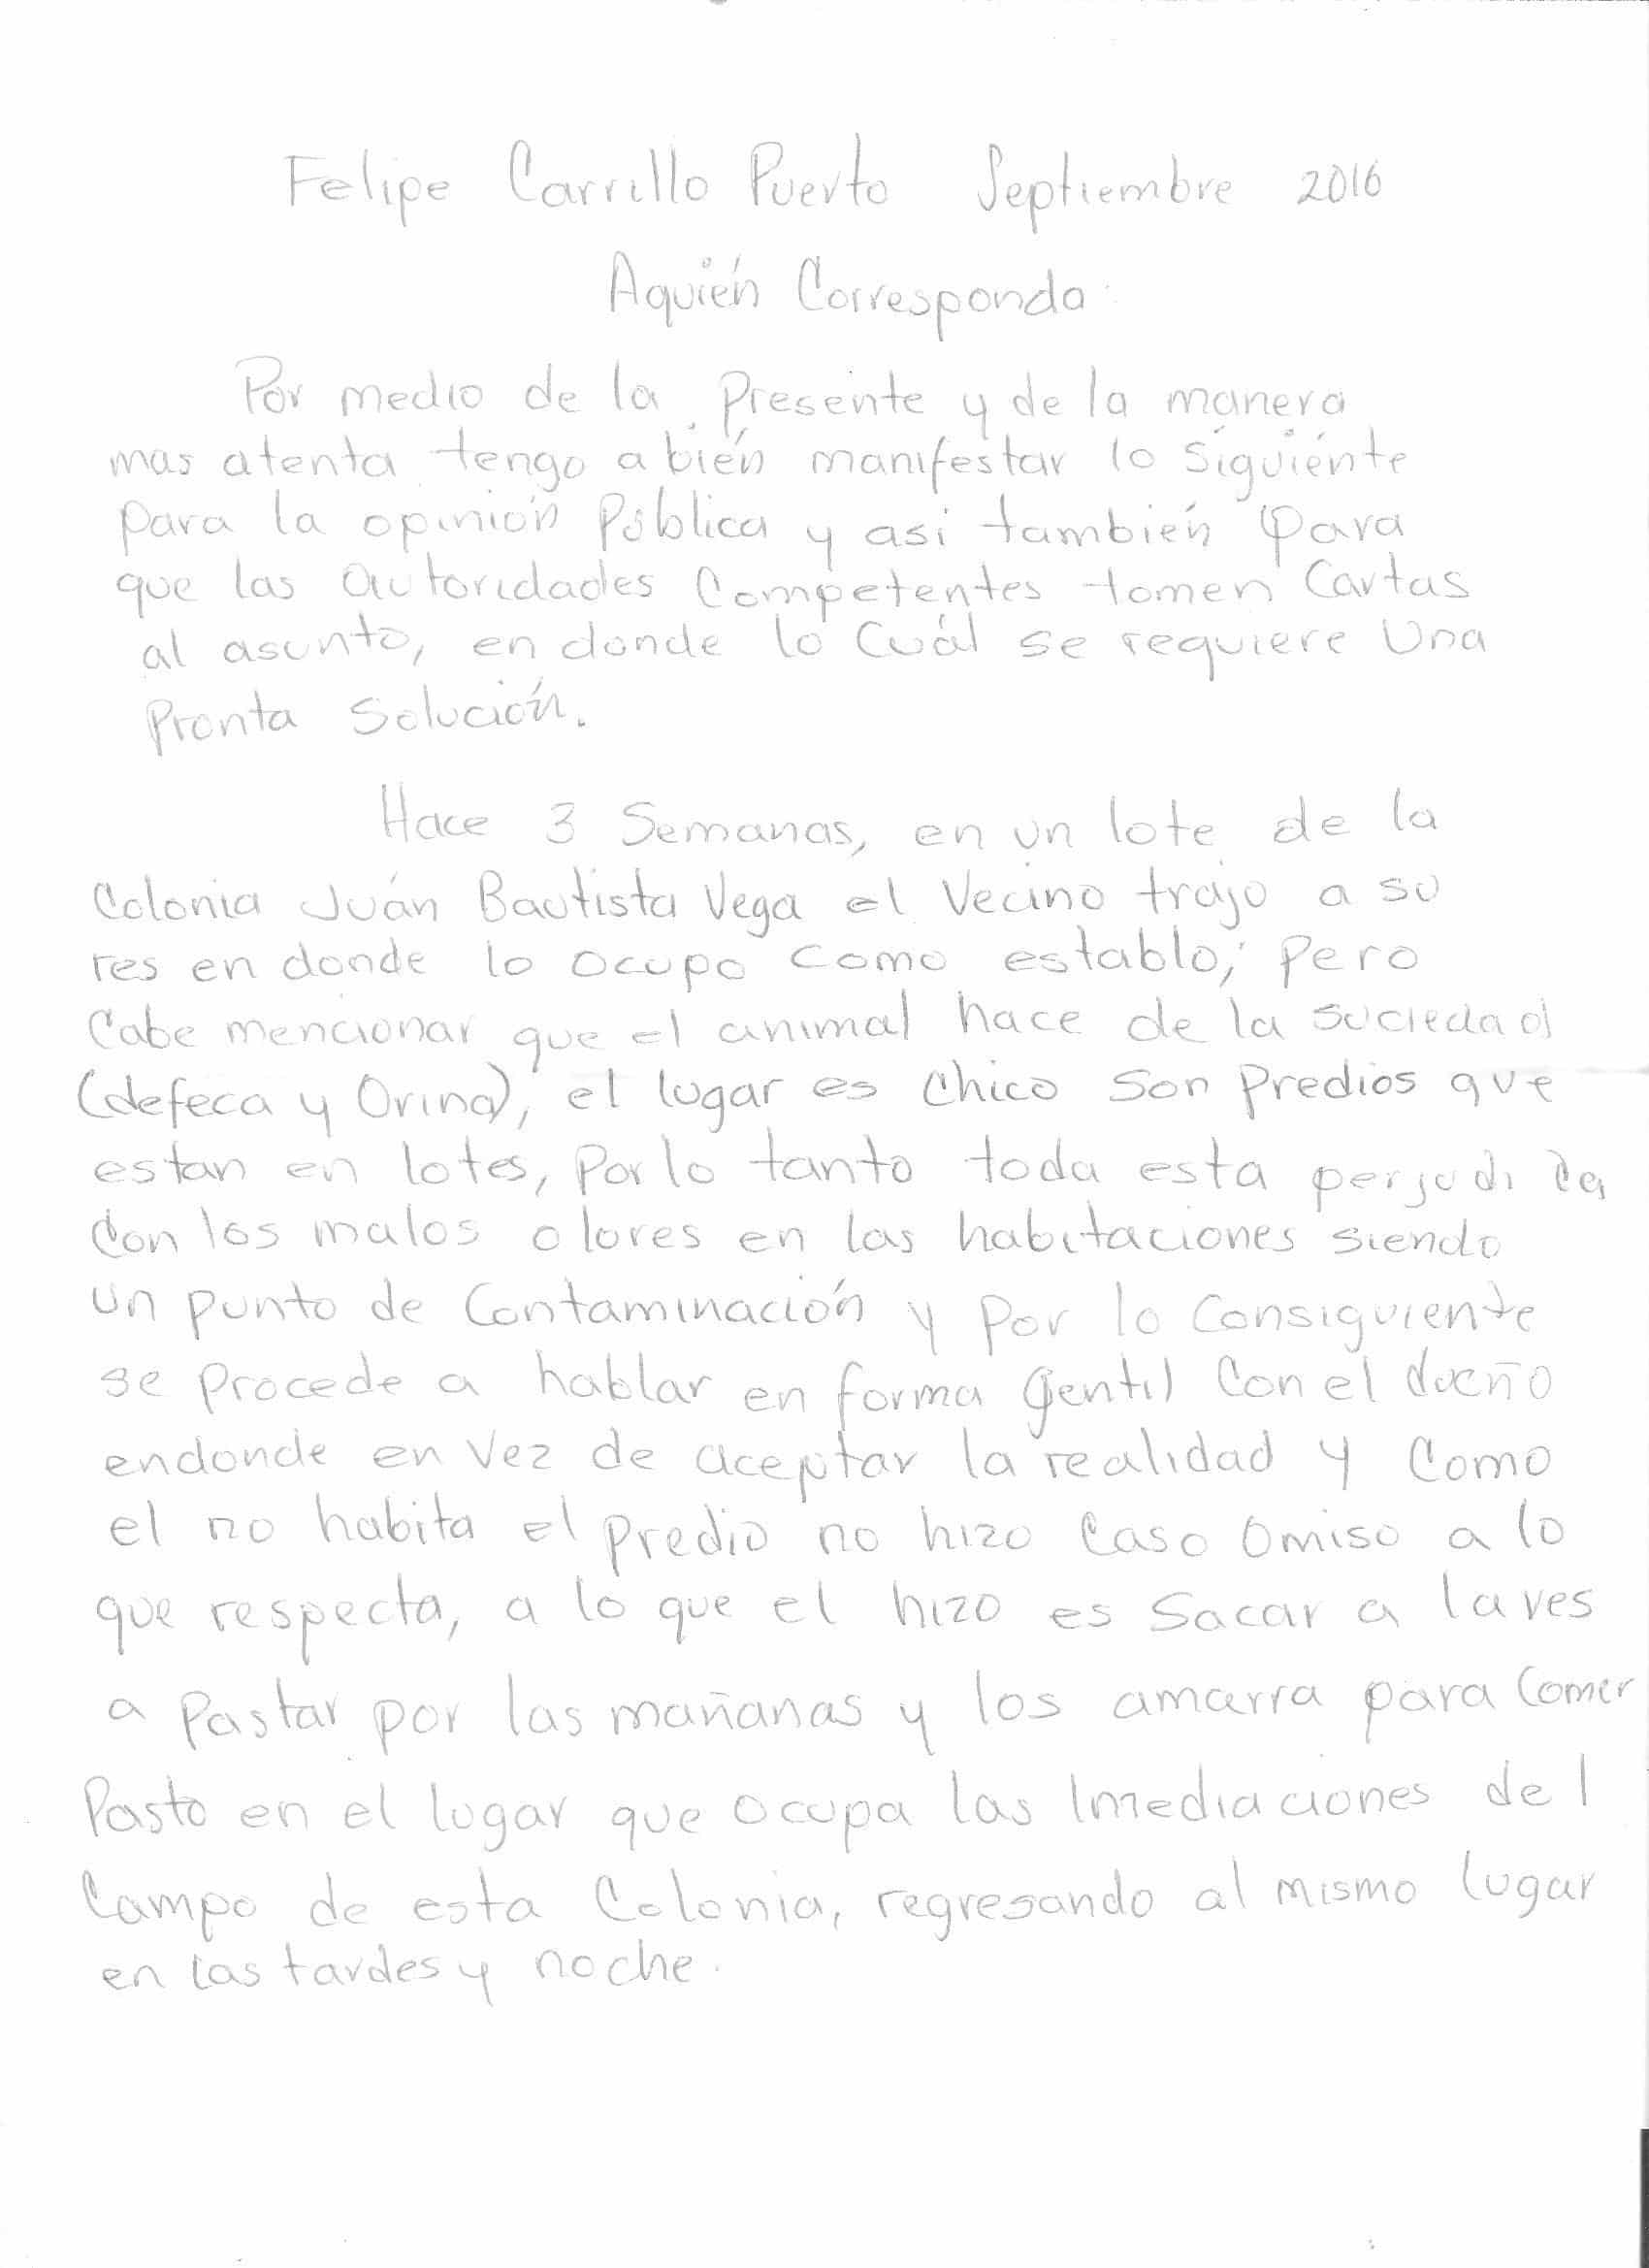 Felipe Carrillo Puerto Septiembre 2016
Aquién Corresponda:
Por medio de la Presente y de la manera
mas atenta tengo a bién manifestar lo Siguiénte
para la opinión Pública y asi también para
que las autoridades Competentes tomen Cartas
al asunto, en donde lo Cuál se requiere Una
Pronta Solución.
Hace 3 Semanas, en un lote de la
Colonia Juán Bautista Vega el Vecino trajo a su
res en donde lo ocupo como establo, pero
Cabe mencionar que el animal hace de la suciedad
(defeca y Orina), el lugar es Chico Son Predios que
estan en lotes, Por lo tanto toda esta perjudica
Con los malos olores en las habitaciones siendo
un punto de Contaminación y por lo Consiguiente
se procede a hablar en forma gentil Con el dueño
endonde en Vez de aceptar la realidad y Como
el no habita el predio no hizo Caso Omiso a lo
que respecta, a lo que el hizo es Sacar a la ves
a Pastar por las mañanas y los amarra para Comer
Pasto en el lugar que ocupa las Imediaciones del
Campo de esta Colonia, regresando al mismo lugar
en las tardes y noche.